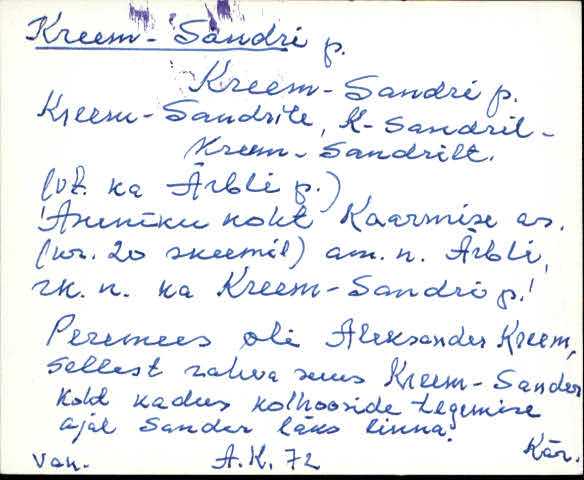 Kreem-Sandri p.
Kreem-Sandri p.
Kreem-Sandrile, K-Sandril-
Kreem-Sandrilt.
(vt. ka Ärbli p.)
'Aseniku koht Kaarmise as.
(nr. 20 skeemil) am. n. Ärbli,
rk. n. ka Kreem-Sandri p.'
Peremees oli Aleksander Kreem,
sellest rahva suus Kreem-Sander
Koht kadus kolhooside tegemise
ajal Sander läks linna.
Kär.
Van. A.K. 72